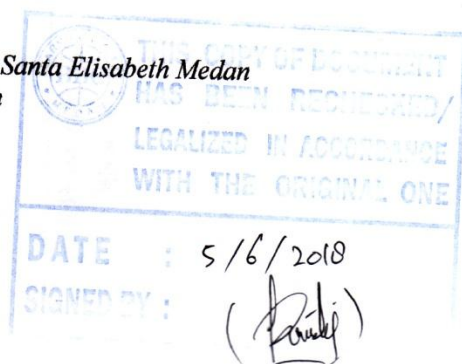 Santa Elisabeth Medan
THIS COPY OF DOCUMENT
HAS BEEN RECHECKED/
LEGALIZED IN ACCORDANCE
WITH THE ORIGINAL ONE
DATE : 5/6/2018
SIGNED BY :